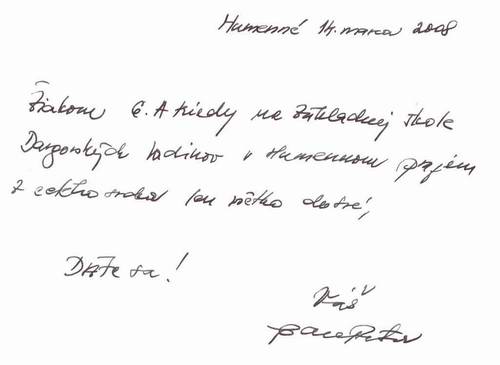 Humenné 14. marca 2008
Žiakom 6. A triedy na Základnej škole
Dargovských hrdinov v Humennom prajem
z celého srdca len všetko dobré,
Držte sa!
Váš